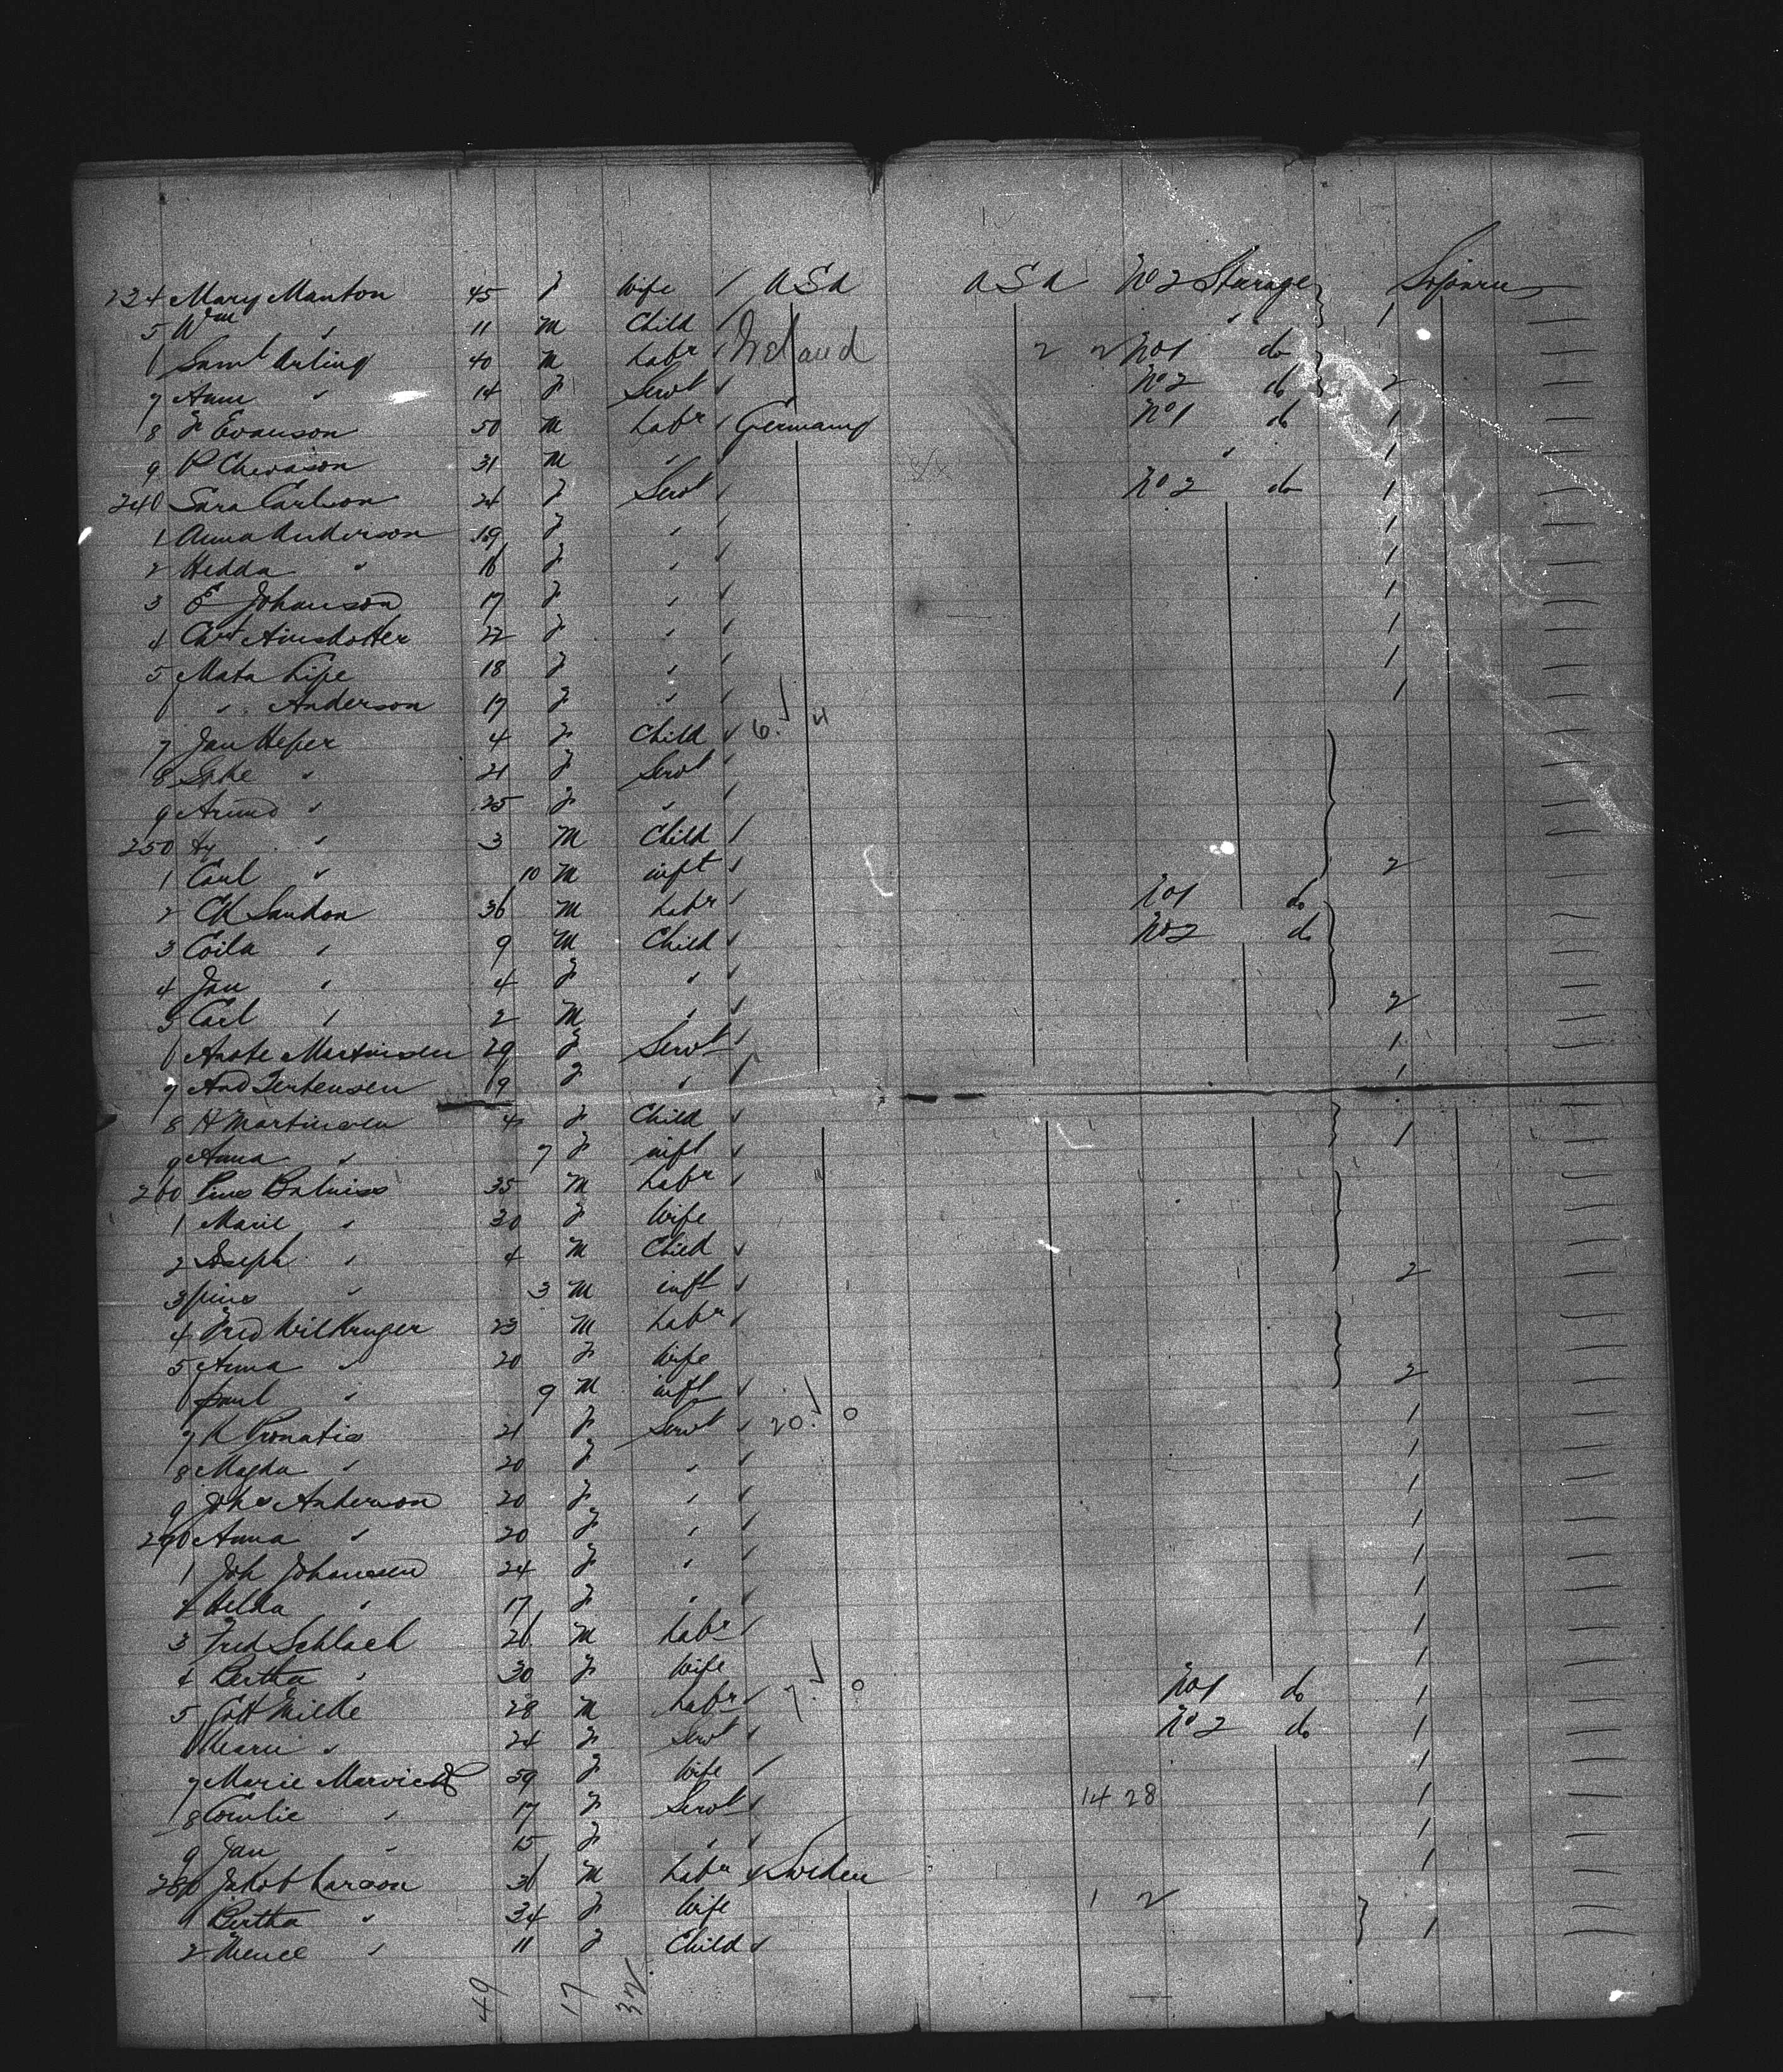 234 Mary Manton 45 F Wife / USA USA No 2 Sturage } Sojourn
5 Wm " 11 M Child / " } 1
6 Saml Arling 40 M Labr / Ireland 2 2 No 1 do }
7 Anne " 14 F Servt / No 2 do } 2
8 F Evanson 50 M Labr / Germany No 1 do 1
9 P 31 M " / " 1
240 Sara Carlson 24 F Servt / No 2 do 1
1 Anna Anderson 19 F " / 1
2 Hedda " 16 F " / 1
3 E Johanson 17 F " / 1
4 22 F " / 1
5 Mata Lipe 18 F " / 1
6 " Anderson 17 F " / 1
7 Jan Hefer 4 F Child / 6 4
8 " 21 F Servt /
9 " 25 F " /
250 Hy " 3 M Child /
1 Carl " 10 M inft / 2
2 CH Sandon 36 M Labr / No 1 do
3 Coila " 9 M Child / No 2 do
4 Jan " 4 F " /
5 Carl " 2 M " / 2
6 Martinsen 29 F Servt / 1
7 And 19 F " / 1
8 H Martinsen 4 F Child /
9 Anna " 7 F inft / 1
260 Pius 35 M Labr /
1 Marie " 30 F Wife
2 Joseph " 4 M Child /
3 Pius " 3 M inft / 2
4 Fred Wil Kruger 23 M Labr /
5 Anna " 20 F Wife
6 Paul " 9 M inft / 2
7 A Pronatis 21 F Servt / 20 0 1
8 Magda " 20 F " / 1
9 Joha Anderson 20 F " / 1
270 Anna " 20 F " / 1
1 Joh Johansen 24 F " / 1
2 Helda " 17 F " / 1
3 Fred Schlach 26 M Labr / 1
4 Bertha " 30 F Wife 1
5 Gott Milke 28 M Labr / 7 0 No 1 do 1
6 Marie " 24 F Servt / No 2 do 1
7 Marie 59 F Wife / 1
8 Emilie " 17 F Servt / 14 28 1
9 Jan " 15 F " / 1
280 Jakob Larson 36 M Labr / Sweden 1
1 Bertha " 34 F Wife 1 2
2 " 11 F Child / 1
49 17 32